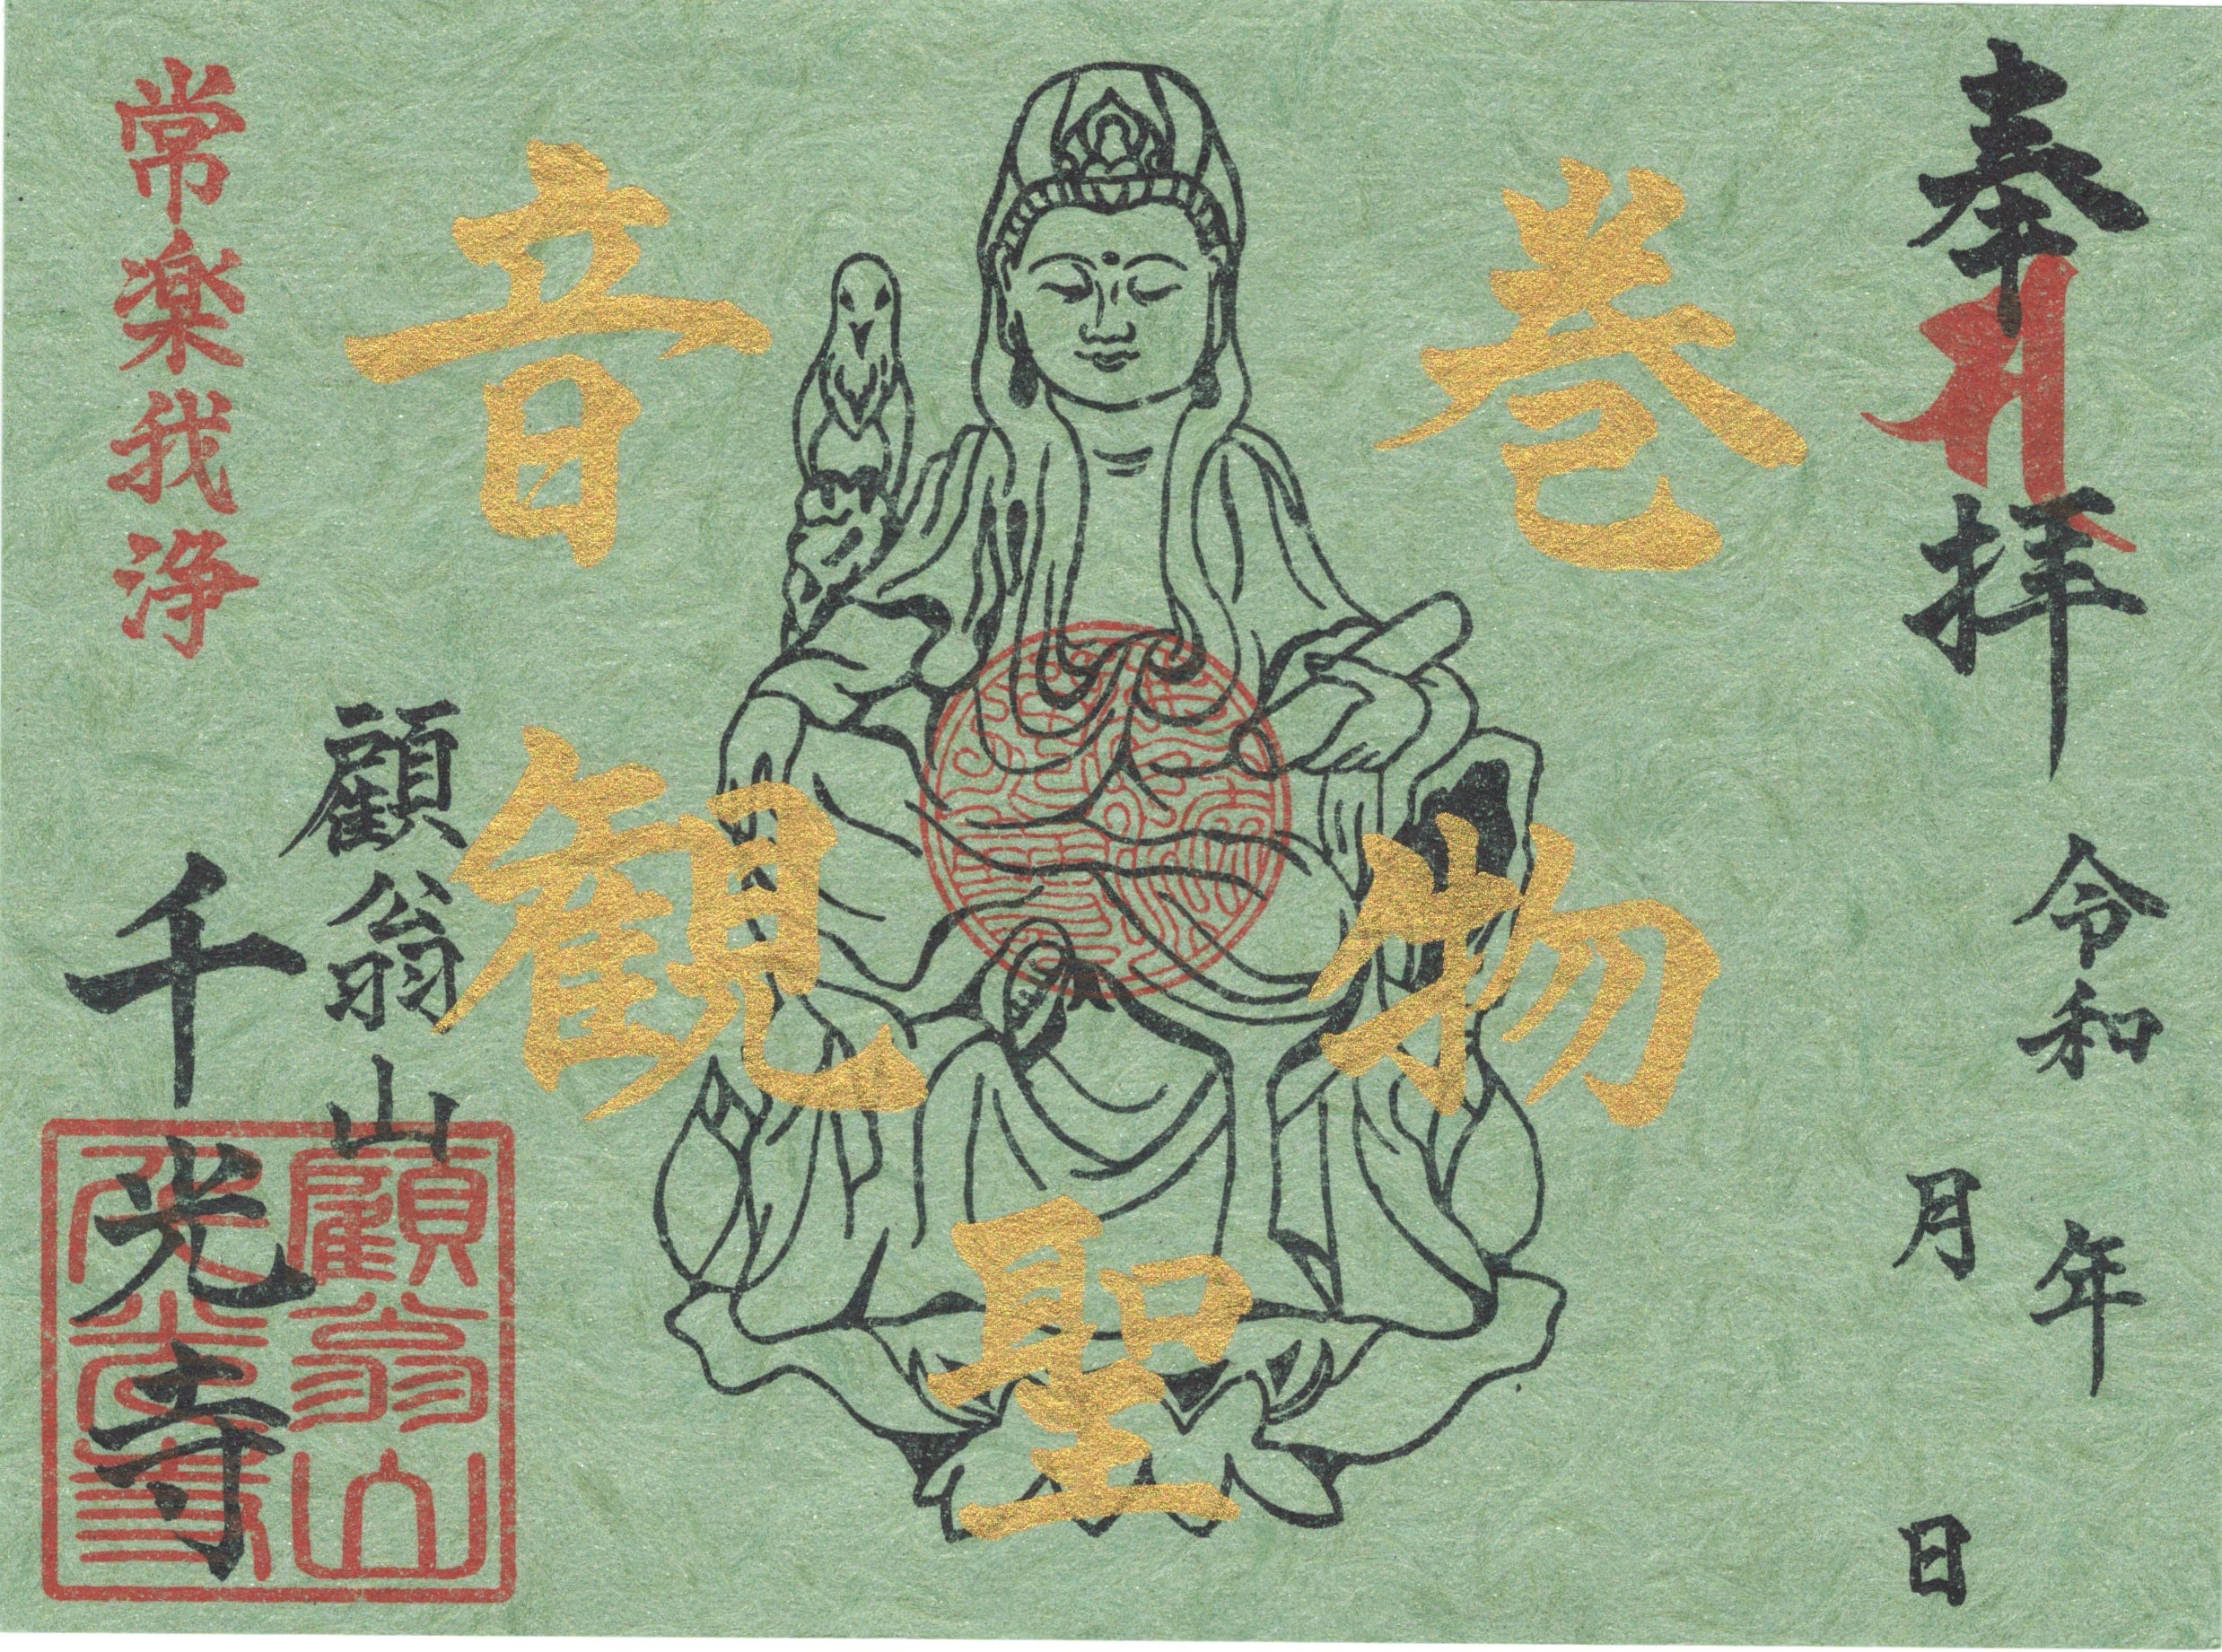 奉拝
令和 年
月 日
巻物
聖
観音
常楽我浄
顧翁山
千光寺
顧翁山